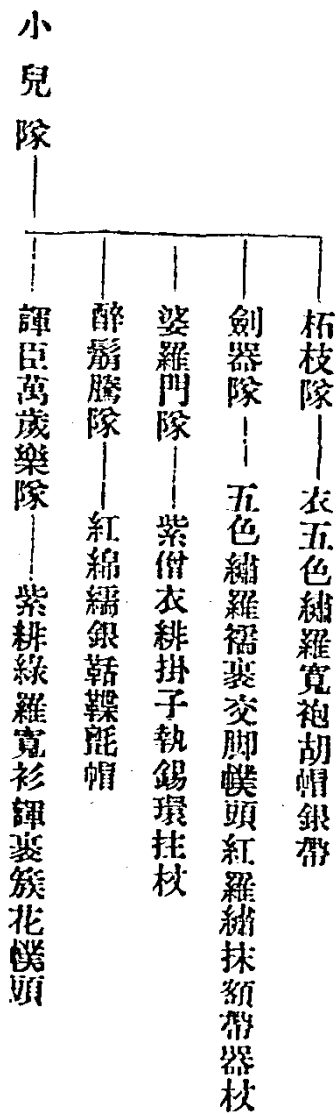 小兒隊
柘枝隊——衣五色繡羅寬袍胡帽銀帶
劍器隊——五色繡羅襦裹交脚幞頭紅羅繡抹額帶器杖
婆羅門隊——紫僧衣緋掛子執錫環拄杖
醉鬍騰隊——紅綿襦銀䩞鞢氈帽
諢臣萬歲樂隊——紫緋綠羅寬衫諢裹簇花幞頭